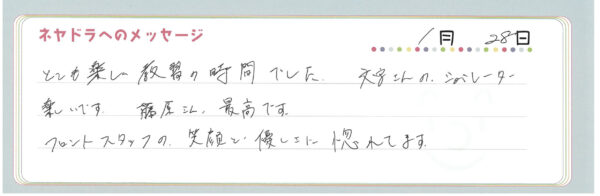 ネヤドラへのメッセージ
1月 28日
とても楽しい教習の時間でした。 さんの、シュミレーター
楽しいです。 藤原さん、最高です。
フロントスタッフの、笑顔と、優しさに惚れてます。